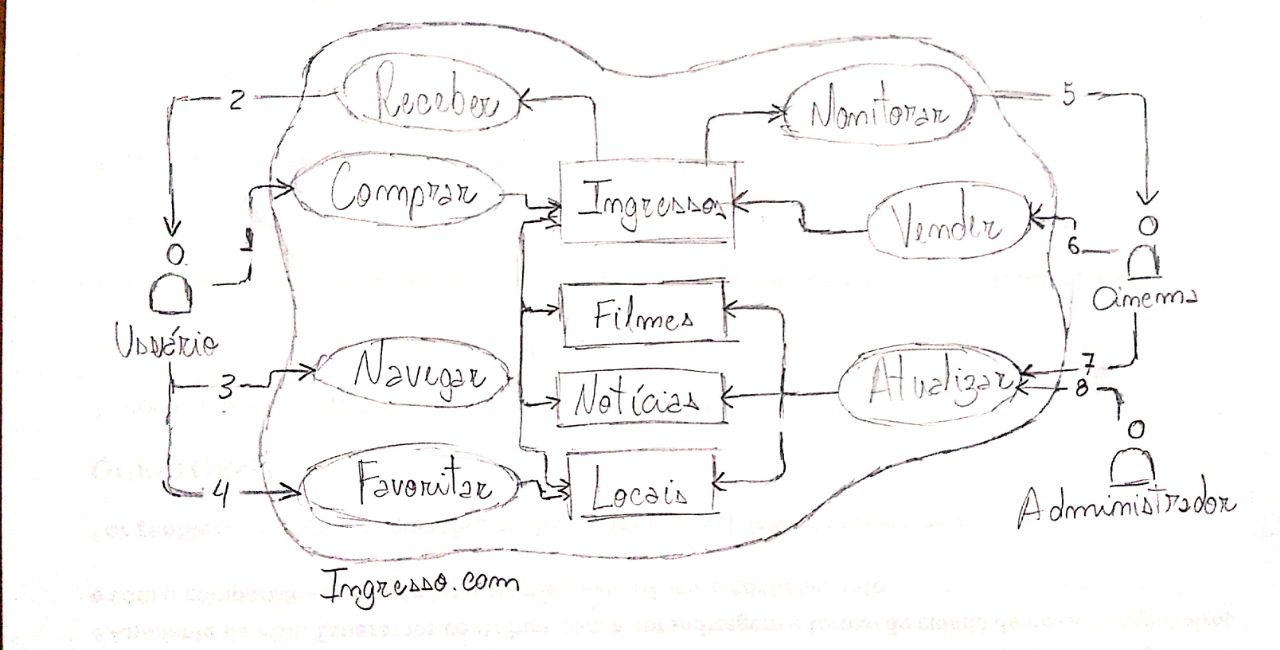 2
Receber
Monitorar
5
Comprar
Ingressos
Vender
1
6
Cinema
Filmes
Usuário
3
Navegar
Notícias
Atualizar
7
8
4
Favoritar
Locais
Administrador
Ingresso.com